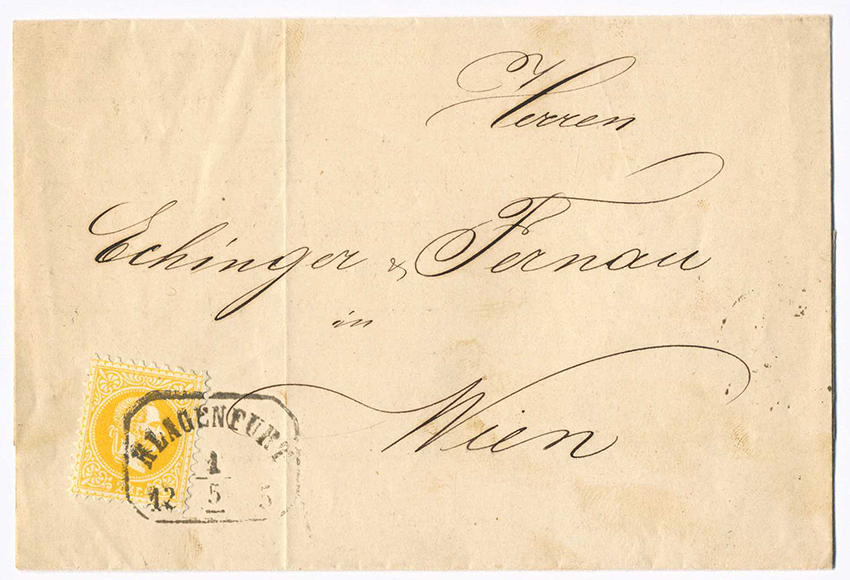 Herren
Echinger & Fernau
in
Wien
KLAGENFURT
1
12 5 5